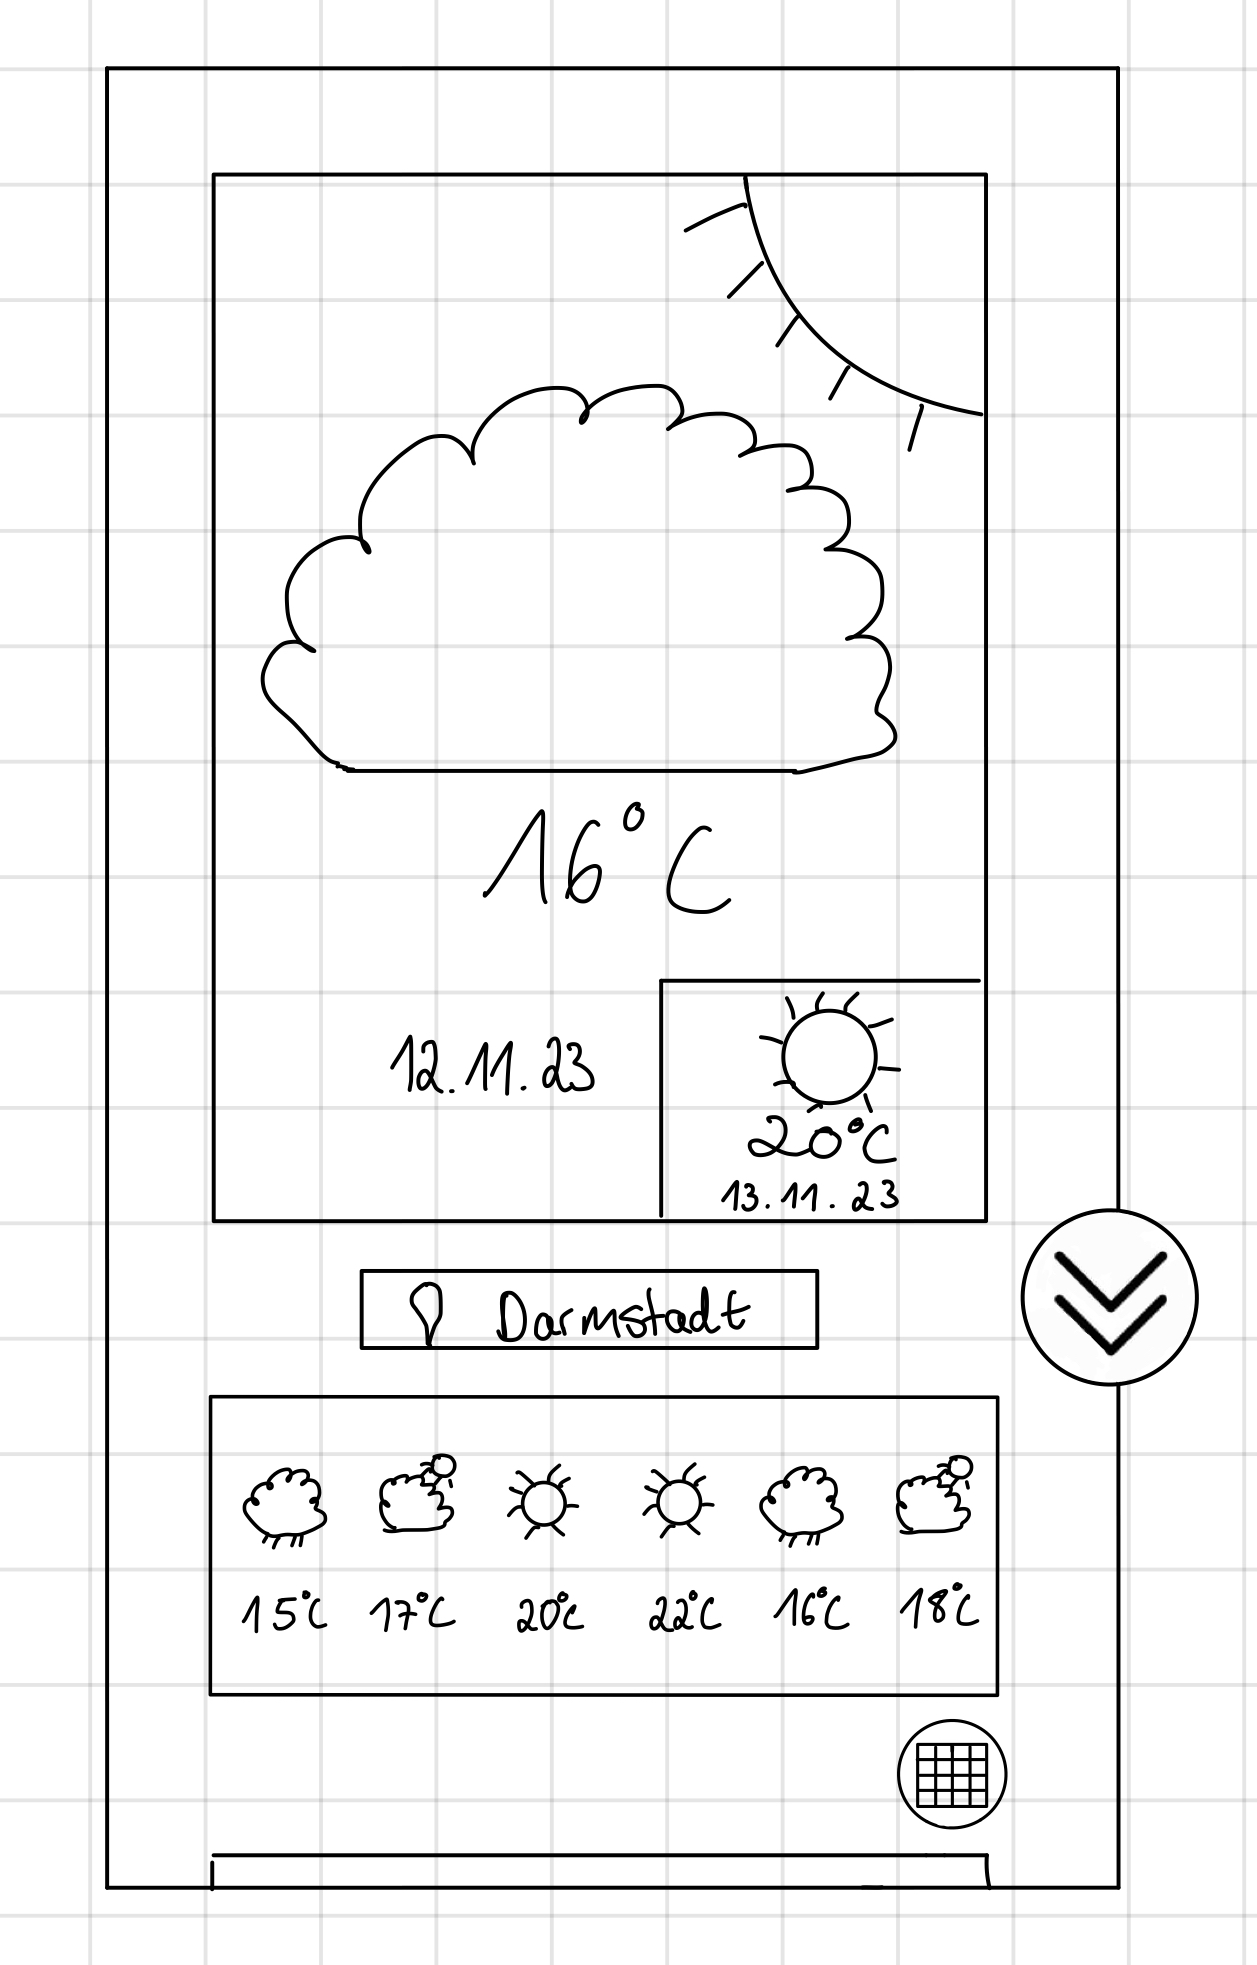 16°C
12.11.23
20°C
13.11.23
Darmstadt
15°C 17°C 20°C 22°C 16°C 18°C